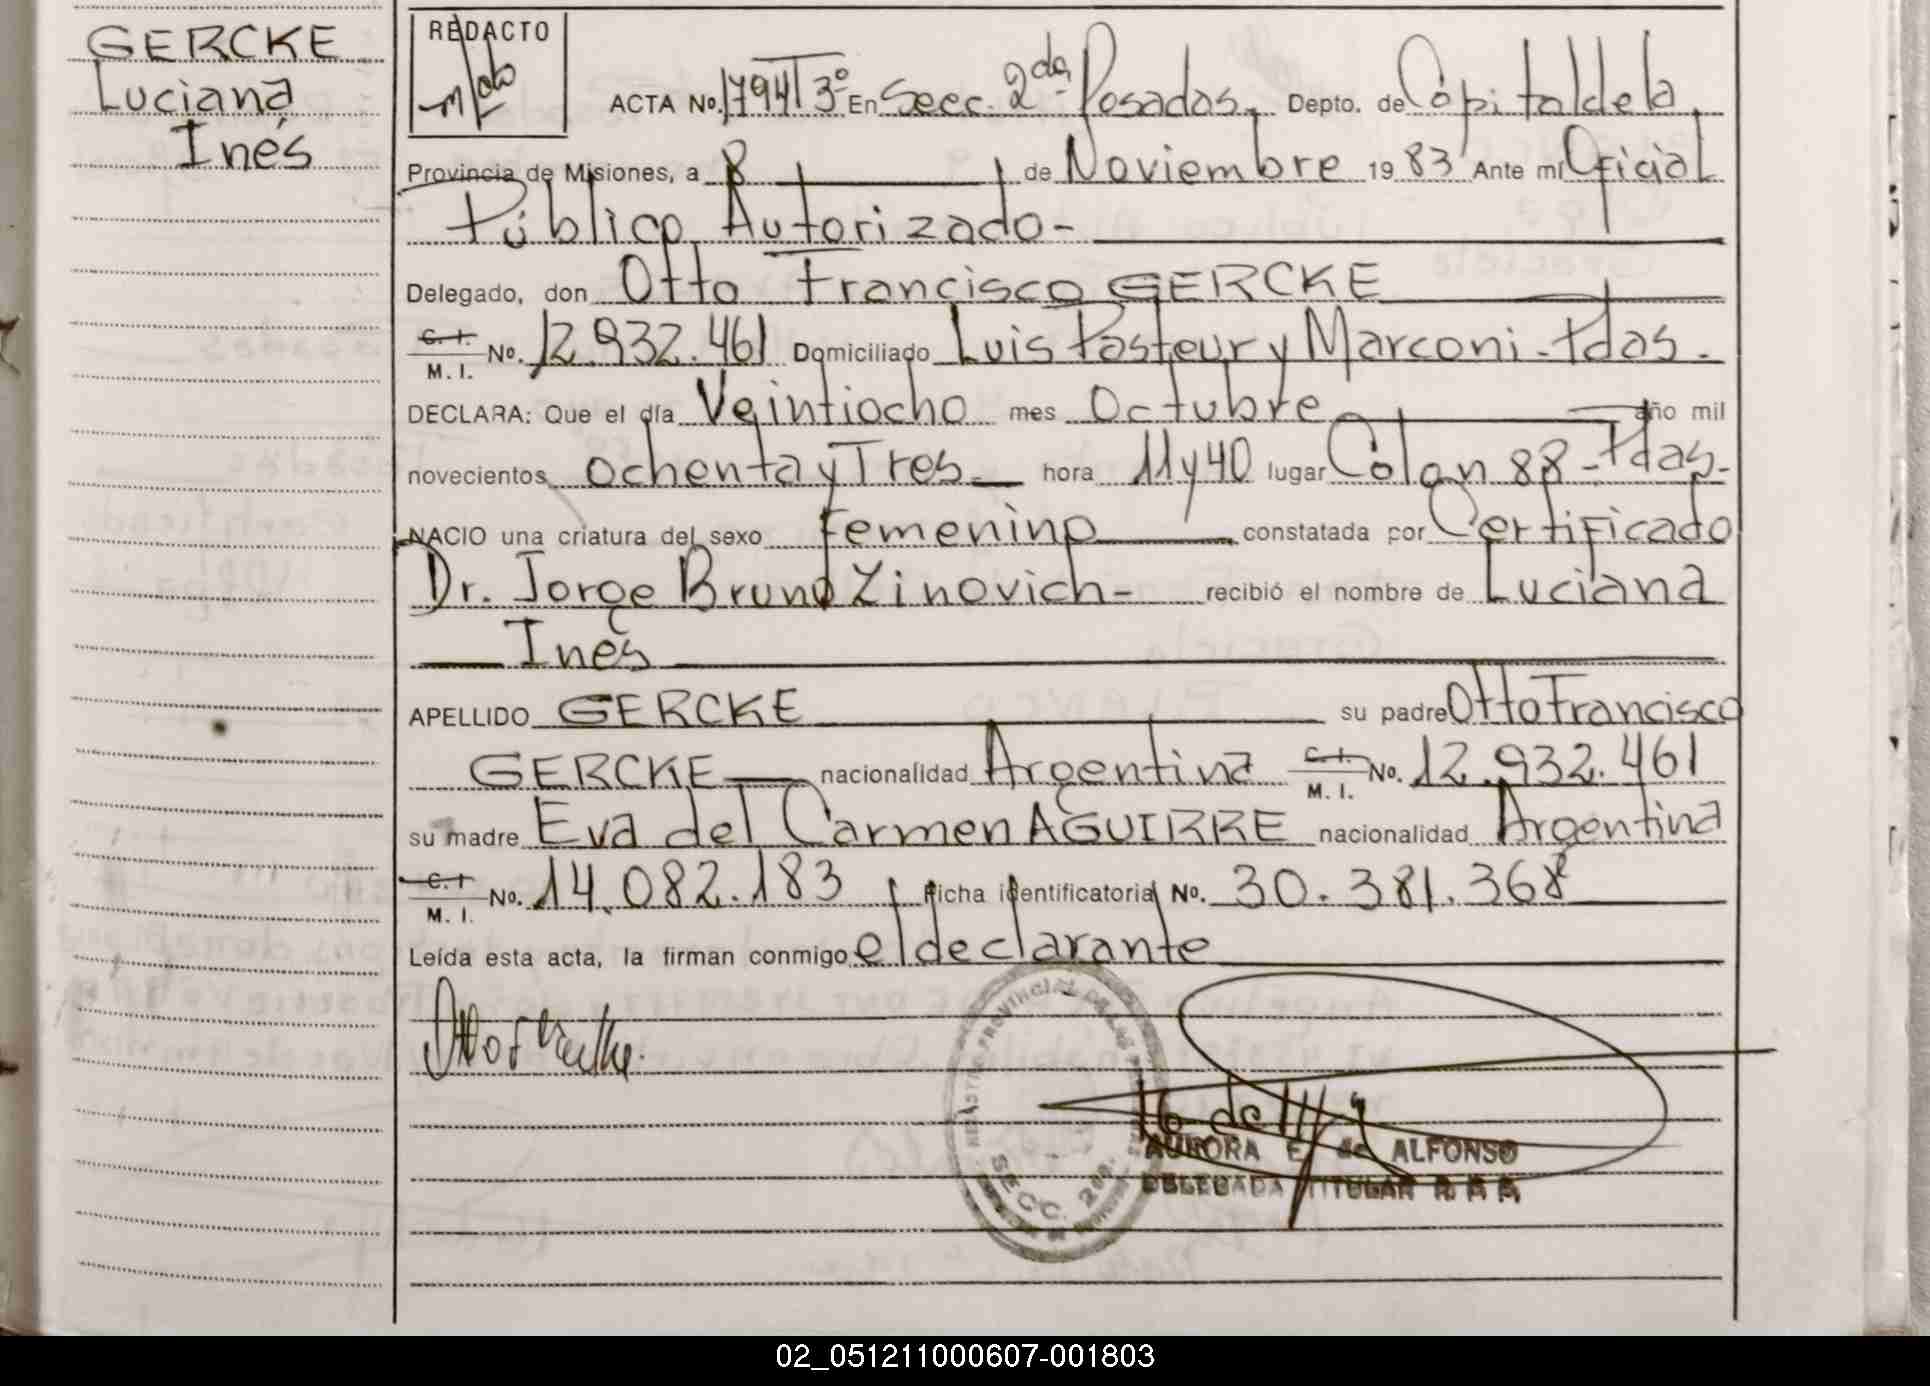 GERCKE
Luciana
Inés
REDACTO
ACTA No. 1794 T 3º En Secc. 2da Posadas, Depto. de Capital de la
Provincia de Misiones, a 8 de Noviembre 19 83 Ante mí Oficial
Público Autorizado-
Delegado, don Otto Francisco GERCKE
C. I. M. I. No. 12.932.461 Domiciliado Luis Pasteur y Marconi - Pdas.
DECLARA: Que el día Veintiocho mes Octubre año mil
novecientos ochenta y Tres hora 11 y 40 lugar Colon 88 - Pdas-
NACIO una criatura del sexo Femenino constatada por Certificado
Dr. Jorge Bruno Zinovich - recibió el nombre de Luciana
Inés
APELLIDO GERCKE su padre Otto Francisco
GERCKE nacionalidad Argentina C. I. M. I. No. 12.932.461
su madre Eva del Carmen AGUIRRE nacionalidad Argentina
C. I. M. I. No. 14.082.183 Ficha identificatoria No. 30.381.368
Leída esta acta, la firman conmigo el declarante
REGISTRO PROVINCIAL DE LAS
SECC. 2da.
AURORA E. de ALFONSO
DELEGADA TITULAR
02_051211000607-001803